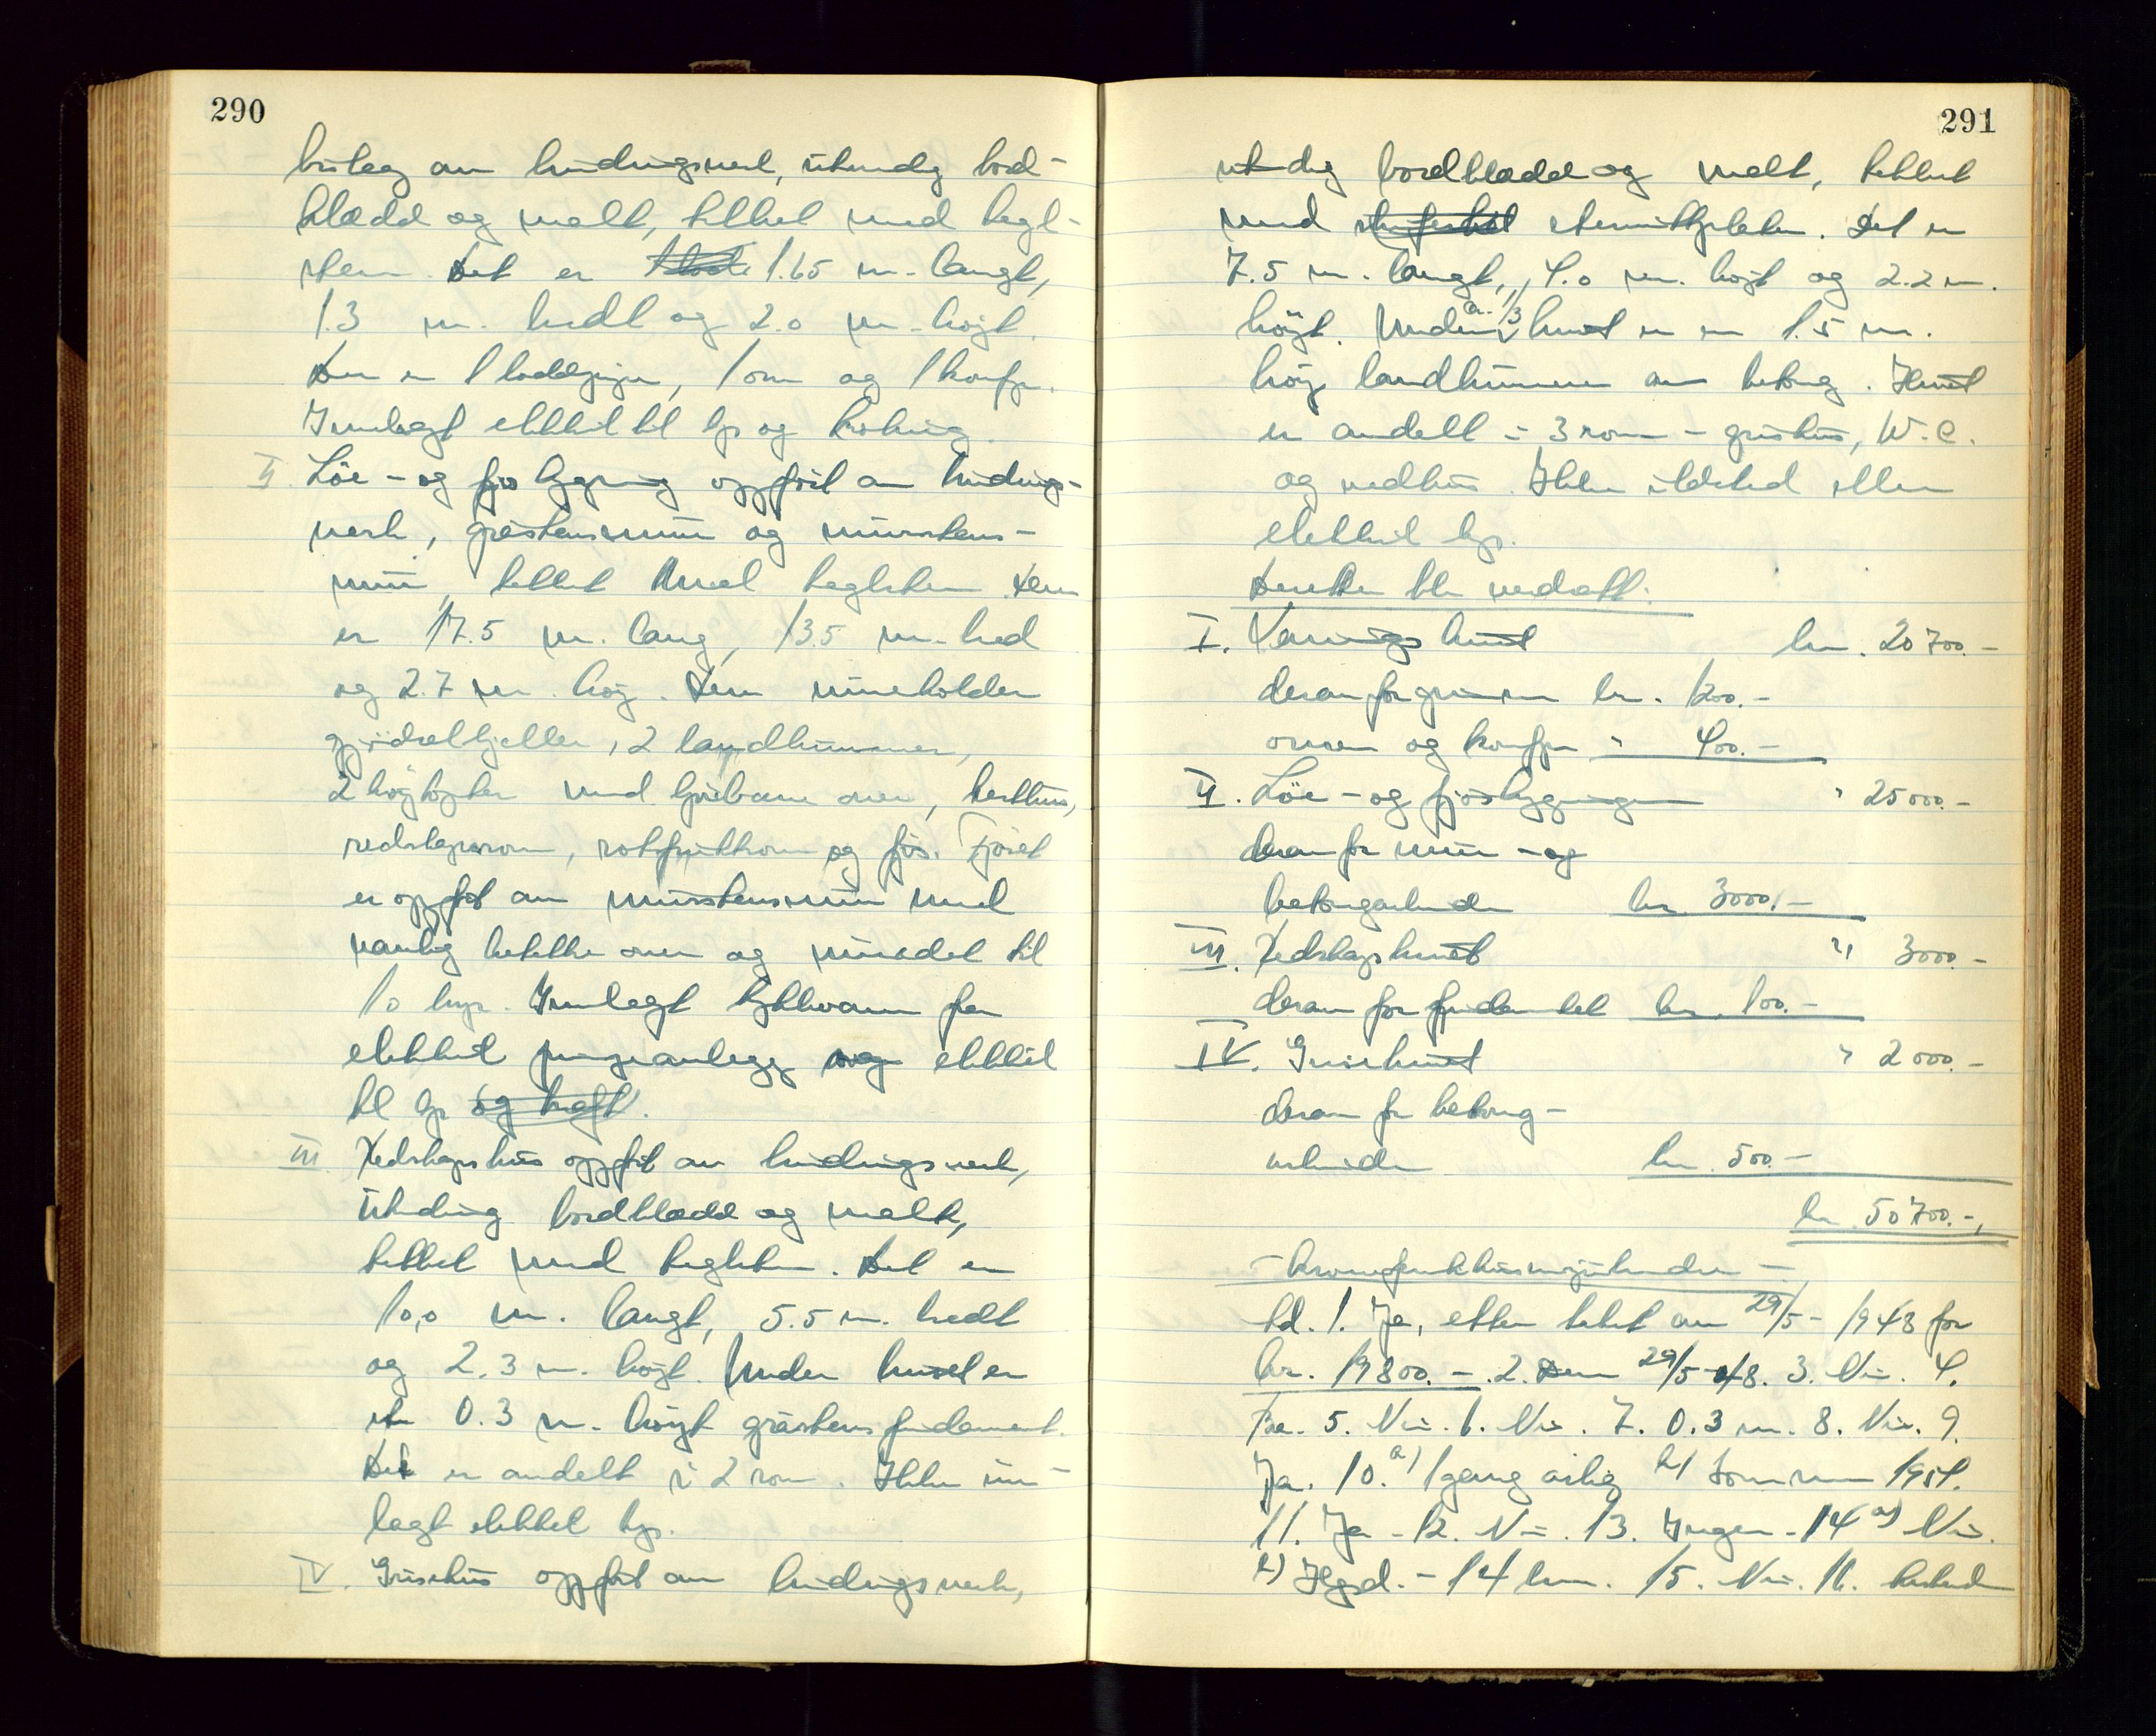 290
bislag av bindingsverk, utvendig bord-
klædd og malt, tekket med tegl-
sten. Det er 1.65 m. langt,
1.3 m. bredt og 2.0 m. høyt.
Der er 1 loddpipe, 1 ovn og 1 komfyr.
Innlagt elektrit til lys og kokning.
II. Løe- og fjøsbygning oppført av bindings-
verk, gråstensmur og murstens-
mur, tekket med teglsten. Den
er 17.5 m. lang, 13.5 m. bred
og 2.7 m. høy. Den inneholder
gjødselkjeller, 2 landkummer,
2 høytopter med kjørbane over, hesthus,
redskapsrom, rotfruktrom og fjøs. Fjøset
er oppført av murstensmur med
vanlig betekke over og innredet til
10 kyr. Innlagt trykkvann fra
elektrit pumpeanlegg og elektrit
til lys og kraft.
III Redskapshus oppført av bindingsverk,
utvendig bordklædd og malt,
tekket med teglsten. Det er
10,0 m. langt, 5.5 m. bredt
og 2.3 m. høyt. Under huset er
et 0.3 m. høyt gråstensfundament.
Det er avdelt i 2 rom. Ikke inn-
lagt elektrit lys.
IV. Grisehus oppført av bindingsverk,
291
utvendig bordklædd og malt, tekket
med eternittplater. Det er
7.5 m. langt, 4.0 m. høyt og 2.2 m.
høyt. Under ca. 1/3 av huset er en 1.5 m.
høy landkumme av betong. Huset
er avdelt i 3 rom - grishus, W.C.
og vedhus. Ikke ildsted eller
elektrit lys.
Deretter ble verdsatt:
I. Våningshuset kr. 20 700.-
derav for grunnmur kr. 1200.-
ovnen og komfyr " 400.-
II. Løe- og fjøsbygningen " 25 000.-
derav for mur- og
betongarbeider kr. 3000.-
III. Redskapshuset " 3000.-
derav for fundamentet kr. 100.-
IV. Grisehuset " 2 000.-
derav for betong-
arbeider kr. 500.-
kr. 50 700.-
- Brannfarlighetsoppgjørelse -
td. 1. Ja, etter takst av 29/5-1948 for
kr. 19 800.-. 2. Den 29/5-48. 3. Nei. 4.
Bra. 5. Nei. 6. Nei. 7. 0.3 m. 8. Nei. 9.
Ja. 10. a) 1 gang årlig b) Sommeren 1951.
11. Ja - 12. Nei. 13. Ingen - 14 a) Nei.
b) Hgsd. - 14 km. 15. Nei. 16.